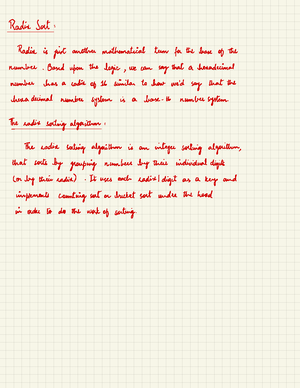 Radix Sort :
Radix is just another mathematical term for the base of the
number. Based upon the logic, we can say that a hexadecimal
number has a radix of 16 similar to how we'd say that the
hexadecimal number system is a base-16 number system
The radix sorting algorithm :
The radix sorting algorithm is an integer sorting algorithm,
that sorts by grouping numbers by their individual digits
(or by their radix). It uses each radix/digit as a key and
implements counting sort or bucket sort under the hood
in order to do the work of sorting.